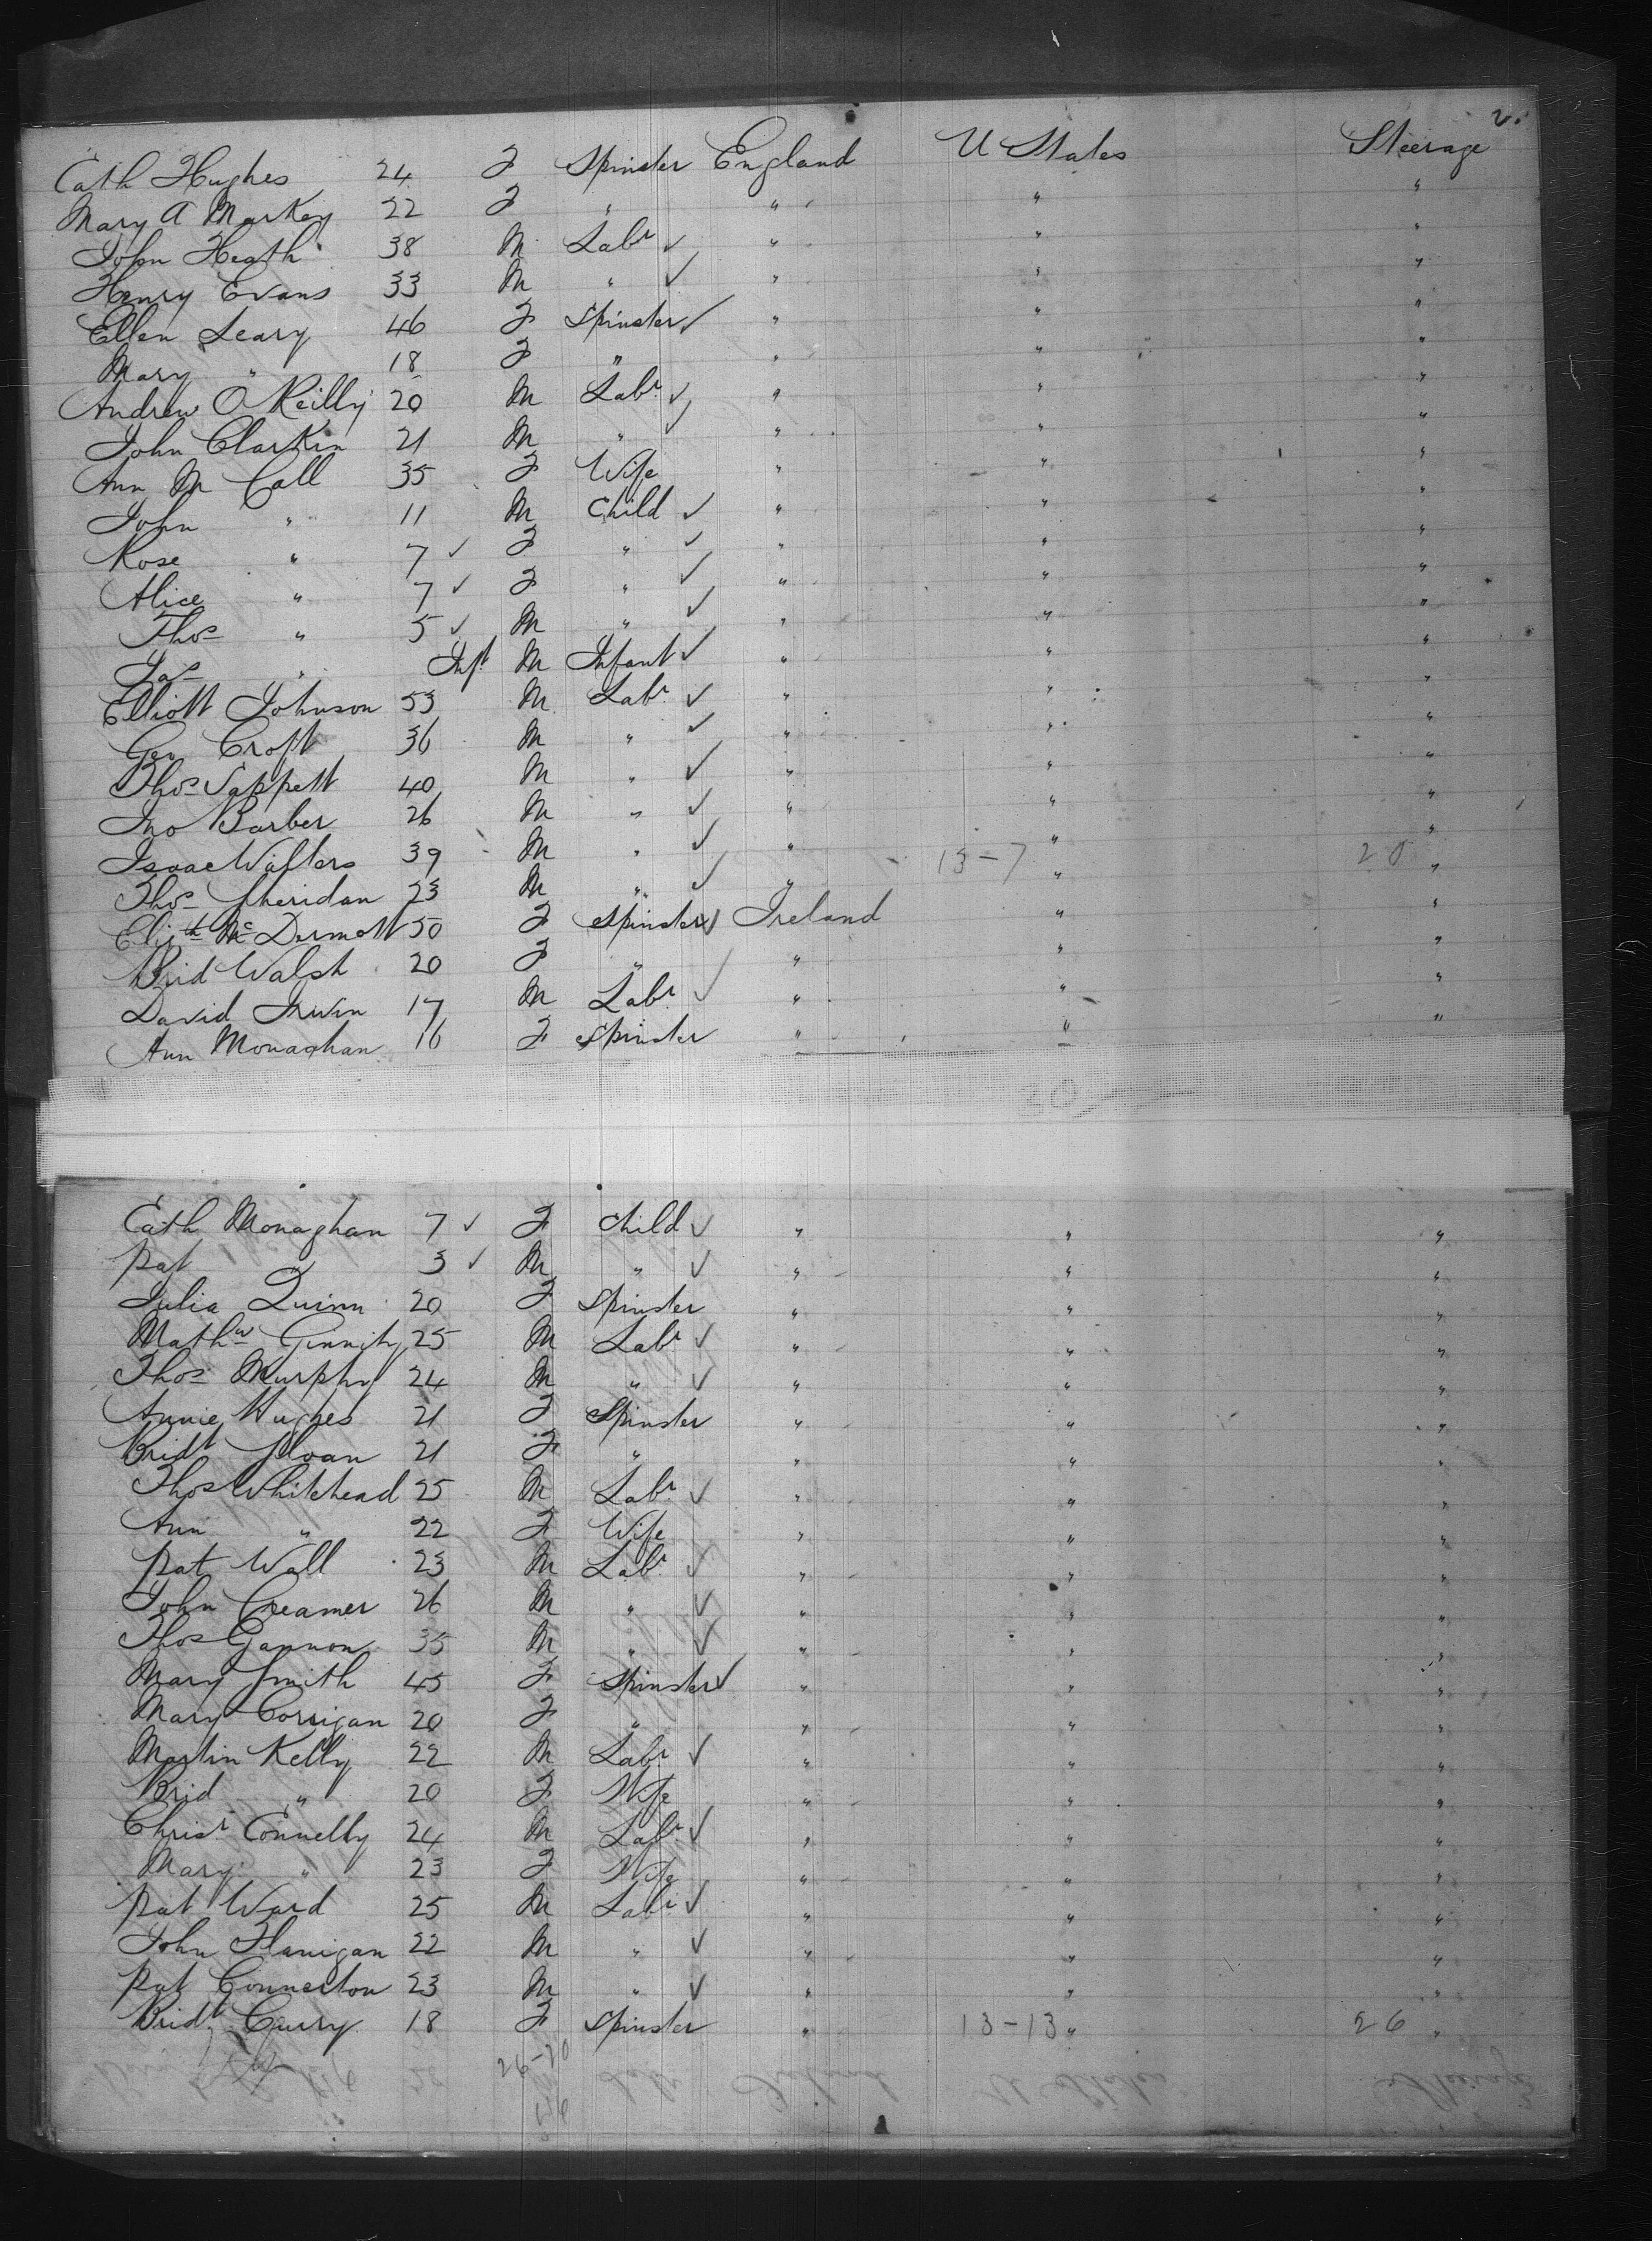 2.
Cath Hughes 24 F Spinster England U States Steerage
Mary A Markey 22 F " " " "
John Heath 38 M Labr ✓ " " "
Henry Evans 33 M " ✓ " " "
Ellen Leary 46 F Spinster ✓ " " "
Mary " 18 F " " " "
Andrew O Reilly 20 M Labr ✓ " " "
John Clarkin 21 M " ✓ " " "
Ann Mc Call 35 F Wife " " "
John " 11 M Child ✓ " " "
Rose " 7 ✓ F " ✓ " " "
Alice " 7 ✓ F " ✓ " " "
Thos " 5 ✓ M " ✓ " " "
Jas " Inft M Infant ✓ " " "
Elliott Johnson 53 M Labr ✓ " " "
Geo Croft 36 M " ✓ " " "
Thos Sappett 40 M " ✓ " " "
Jno Barber 26 M " ✓ " " "
Isaac Walters 39 M " ✓ " " "
Thos Sheridan 23 M " ✓ " 13-7 " 20 "
Elizth McDermott 50 F Spinster ✓ Ireland " "
Brid Walsh 20 F " " " "
David Irwin 17 M Labr ✓ " " "
Ann Monaghan 16 F Spinster " " "
30
Cath Monaghan 7 ✓ F Child ✓ " " "
Pat " 3 ✓ M " ✓ " " "
Julia Quinn 20 F Spinster " " "
Mathw Ginnity 25 M Labr ✓ " " "
Thos Murphy 24 M " ✓ " " "
Annie Hughes 21 F Spinster " " "
Bridt Sloan 21 F " " " "
Thos Whitehead 25 M Labr ✓ " " "
Ann " 22 F Wife " " "
Pat Wall 23 M Labr ✓ " " "
John Creamer 26 M " ✓ " " "
Thos Gannon 35 M " ✓ " " "
Mary Smith 45 F Spinster ✓ " " "
Mary Corrigan 20 F " " " "
Martin Kelly 22 M Labr ✓ " " "
Brid " 20 F Wife " " "
Christ Connelly 24 M Labr ✓ " " "
Mary " 23 F Wife " " "
Pat Ward 25 M Labr ✓ " " "
John Flanigan 22 M " ✓ " " "
Pat Connerton 23 M " ✓ " " "
Bridt Curry 18 F Spinster " 13-13 " 26 "
26-20